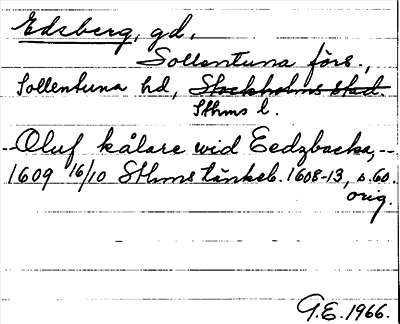 Edsberg, gd,
Sollentuna förs.,
Sollentuna hd, Stockholms stad.
Sthms l.
-Oluf kålare wid Eedzbacka,-
1609 16/10 Sthms tänkeb. 1608-13, s.60.
orig.
G.E. 1966.